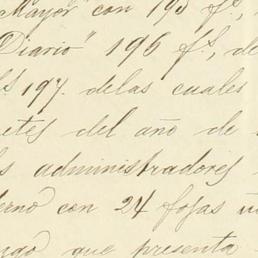 Mayor" con 195 fs.,
Diario" 196 fs., de
197. delas cuales
etes del año de
s administradores
erno con 24 fojas ú
ngo que presenta